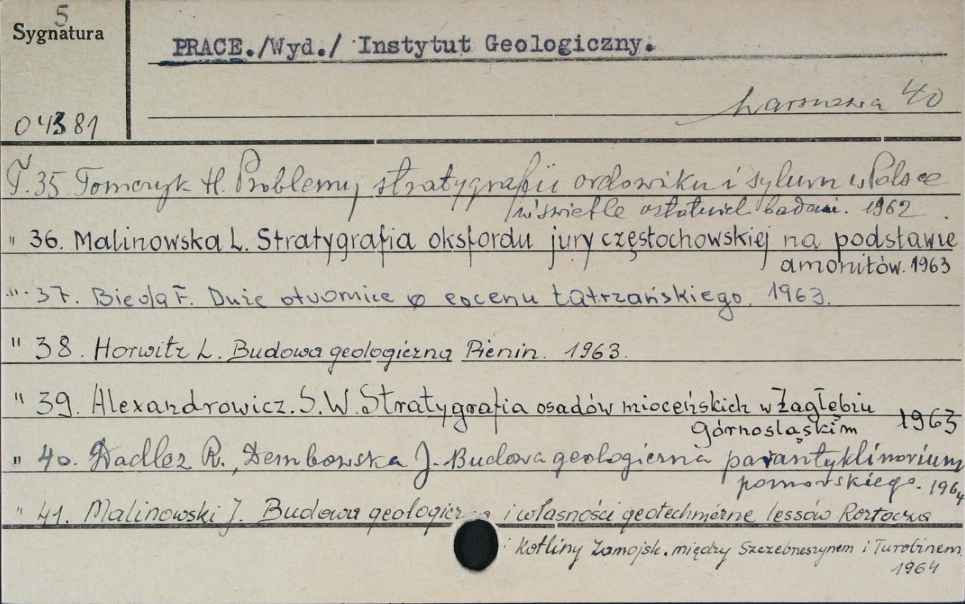 5
Sygnatura
PRACE./Wyd./ Instytut Geologiczny.
Warszawa 40
04381
T.35 Tomczyk H. Problemy stratygrafii ordowiku i syluru w Polsce
w świetle ostatnich badań. 1962.
" 36. Malinowska L. Stratygrafia oksfordu jury częstochowskiej na podstawie
amonitów. 1963
" 37. Bieda F. Duże otwornice eocenu tatrzańskiego. 1963.
" 38. Horwitz L. Budowa geologiczna Pienin. 1963.
" 39. Alexandrowicz. S.W. Stratygrafia osadów mioceńskich w Zagłębiu
Górnośląskim 1963
" 40. Dadlez R., Dembowska J. Budowa geologiczna parantyklinorium
pomorskiego. 1964
" 41. Malinowski J. Budowa geologiczna i własności geotechniczne lessów Roztocza
i Kotliny Zamojsk. między Szczebrzeszynem i Turobinem
1964